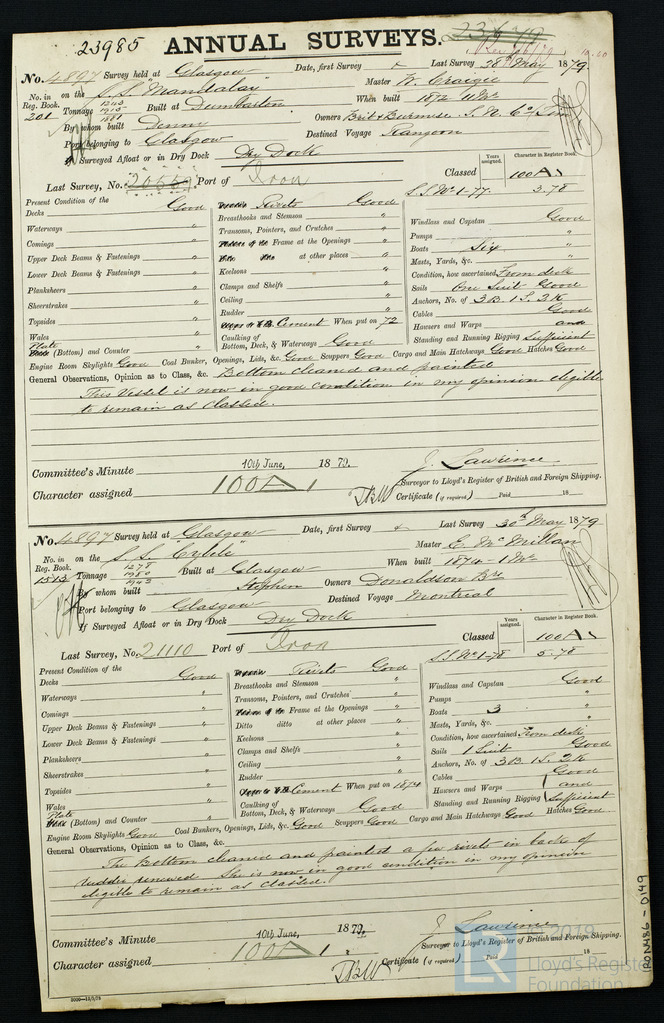 23985 ANNUAL SURVEYS. 23679
No. 4897 Survey held at Glasgow Date, first Survey Last Survey 28th May 1879
No. in on the S.S. "Mandalay" Master W. Craigie
Reg. Book. 201 Tonnage Built at Dumbarton When built 1872
By whom built Denny Owners Brit & Burmese S. N. Co
Port belonging to Glasgow Destined Voyage Rangoon
If Surveyed Afloat or in Dry Dock Dry Dock
Years assigned. Character in Register Book.
Last Survey, No. 20559 Port of Iron Classed 100 A 1
S.S. No. 1-77 3-78
Present Condition of the
Decks Good
Waterways "
Comings "
Upper Deck Beams & Fastenings "
Lower Deck Beams & Fastenings "
Planksheers "
Sheerstrakes "
Topsides "
Wales "
Plate (Bottom) and Counter "
Rivets Good
Breasthooks and Stemson "
Transoms, Pointers, and Crutches "
Frame at the Openings "
at other places "
Keelsons "
Clamps and Shelfs "
Ceiling "
Rudder "
Cement When put on 72
Caulking of Bottom, Deck, & Waterways Good
Windlass and Capstan Good
Pumps "
Boats Six "
Masts, Yards, &c. "
Condition, how ascertained From deck
Sails One Suit Good
Anchors, No. of 3 B. 1 S. 2 K
Cables Good
Hawsers and Warps and
Standing and Running Rigging Sufficient
Engine Room Skylights Good Coal Bunker, Openings, Lids, &c. Good Scuppers Good Cargo and Main Hatchways Good Hatches Good
General Observations, Opinion as to Class, &c. Bottom cleaned and painted
This Vessel is now in good condition in my opinion eligible
to remain as classed.
Committee's Minute 10th June, 1879.
J. Lawrence
Surveyor to Lloyd's Register of British and Foreign Shipping.
Character assigned 100 A 1
Certificate (if required) Paid 18
No. 4897 Survey held at Glasgow Date, first Survey Last Survey 30th May 1879
No. in on the S.S. "Cybele" Master E. McMillan
Reg. Book. 1513 Tonnage 1278 1980 1942 Built at Glasgow When built 1874
By whom built Stephen Owners Donaldson Brs
Port belonging to Glasgow Destined Voyage Montreal
If Surveyed Afloat or in Dry Dock Dry Dock
Years assigned. Character in Register Book.
Last Survey, No. 21110 Port of Iron Classed 100 A 1
S.S. No. 1-78 5-78
Present Condition of the
Decks Good
Waterways "
Comings "
Upper Deck Beams & Fastenings "
Lower Deck Beams & Fastenings "
Planksheers "
Sheerstrakes "
Topsides "
Wales "
Plate (Bottom) and Counter "
Rivets Good
Breasthooks and Stemson "
Transoms, Pointers, and Crutches "
Frame at the Openings "
Ditto ditto at other places "
Keelsons "
Clamps and Shelfs "
Ceiling "
Rudder "
Cement When put on 1874
Caulking of Bottom, Deck, & Waterways Good
Windlass and Capstan Good
Pumps "
Boats 3 "
Masts, Yards, &c. "
Condition, how ascertained From deck
Sails 1 Suit Good
Anchors, No. of 3 B. 1 S. 2 K
Cables Good
Hawsers and Warps and
Standing and Running Rigging Sufficient
Engine Room Skylights Good Coal Bunkers, Openings, Lids, &c. Good Scuppers Good Cargo and Main Hatchways Good Hatches Good
General Observations, Opinion as to Class, &c.
The Bottom cleaned and painted a few rivets in back of
rudder renewed She is now in good condition in my opinion
eligible to remain as classed.
Committee's Minute 10th June, 1879.
J. Lawrence
Surveyor to Lloyd's Register of British and Foreign Shipping.
Character assigned 100 A 1
Certificate (if required) Paid 18
RON486-0149
© 2019
LR Lloyd's Register
Foundation